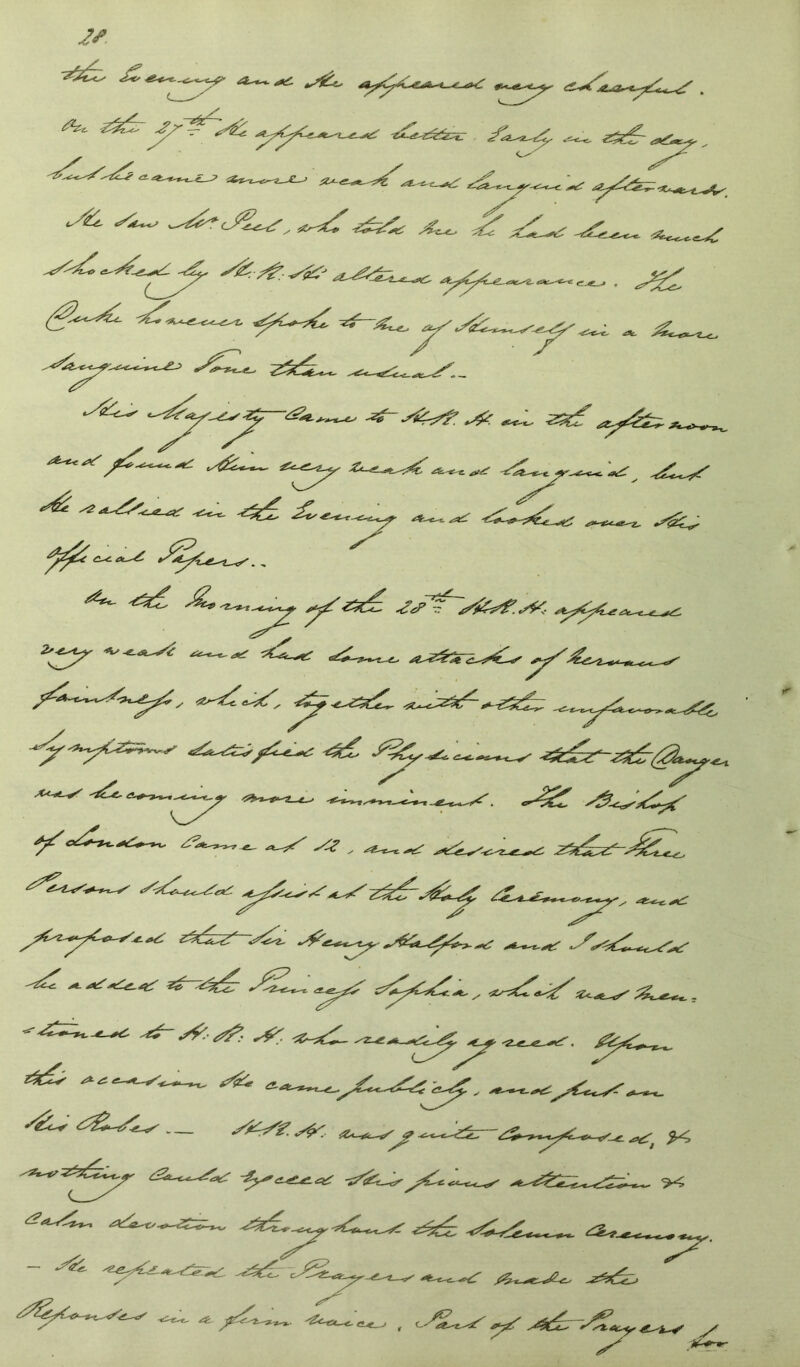 28.
the Evening and He appeared very cheerful.
On the 27th He appeared better Early in the day,
but became more weak and languid afterwards.
He saw Mr Peel, who told me he had been much
shocked by H.R.Hs altered appearance. The
Duke however spoke to me of Himself in a more
sanguine Tone than usual —
His Majesty Came to H.R.H. in the afternoon
and found Him very weak and languid, but
He rallied in the Evening and looked over His
official Papers..
On the Morning of the 28th H.R.H: appeared
very weak and had some attacks of nervous
faintness, which, together with other unfavorable
Symptoms satisfied the Physicians that the Danger
was becoming more imminent. The Bishop
of London Came at 12, and desired that Three
Persons should assist at the Holy Ceremony, and
proposed that Sir Henry Halford and I should
be added to the Princess Sophia, which was men=
=tioned to H:R:H: who readily agreed. Upon
this occasion He came publicly, and put on
His Robes. — H.R.H: was quite Composed, &
nothing Could Exceed His pious attention &
Calm devotion throughout the Solemn Ceremony.
— He repeated the Prayers and made the
Reponses in a firm voice. Part of the Prayers for